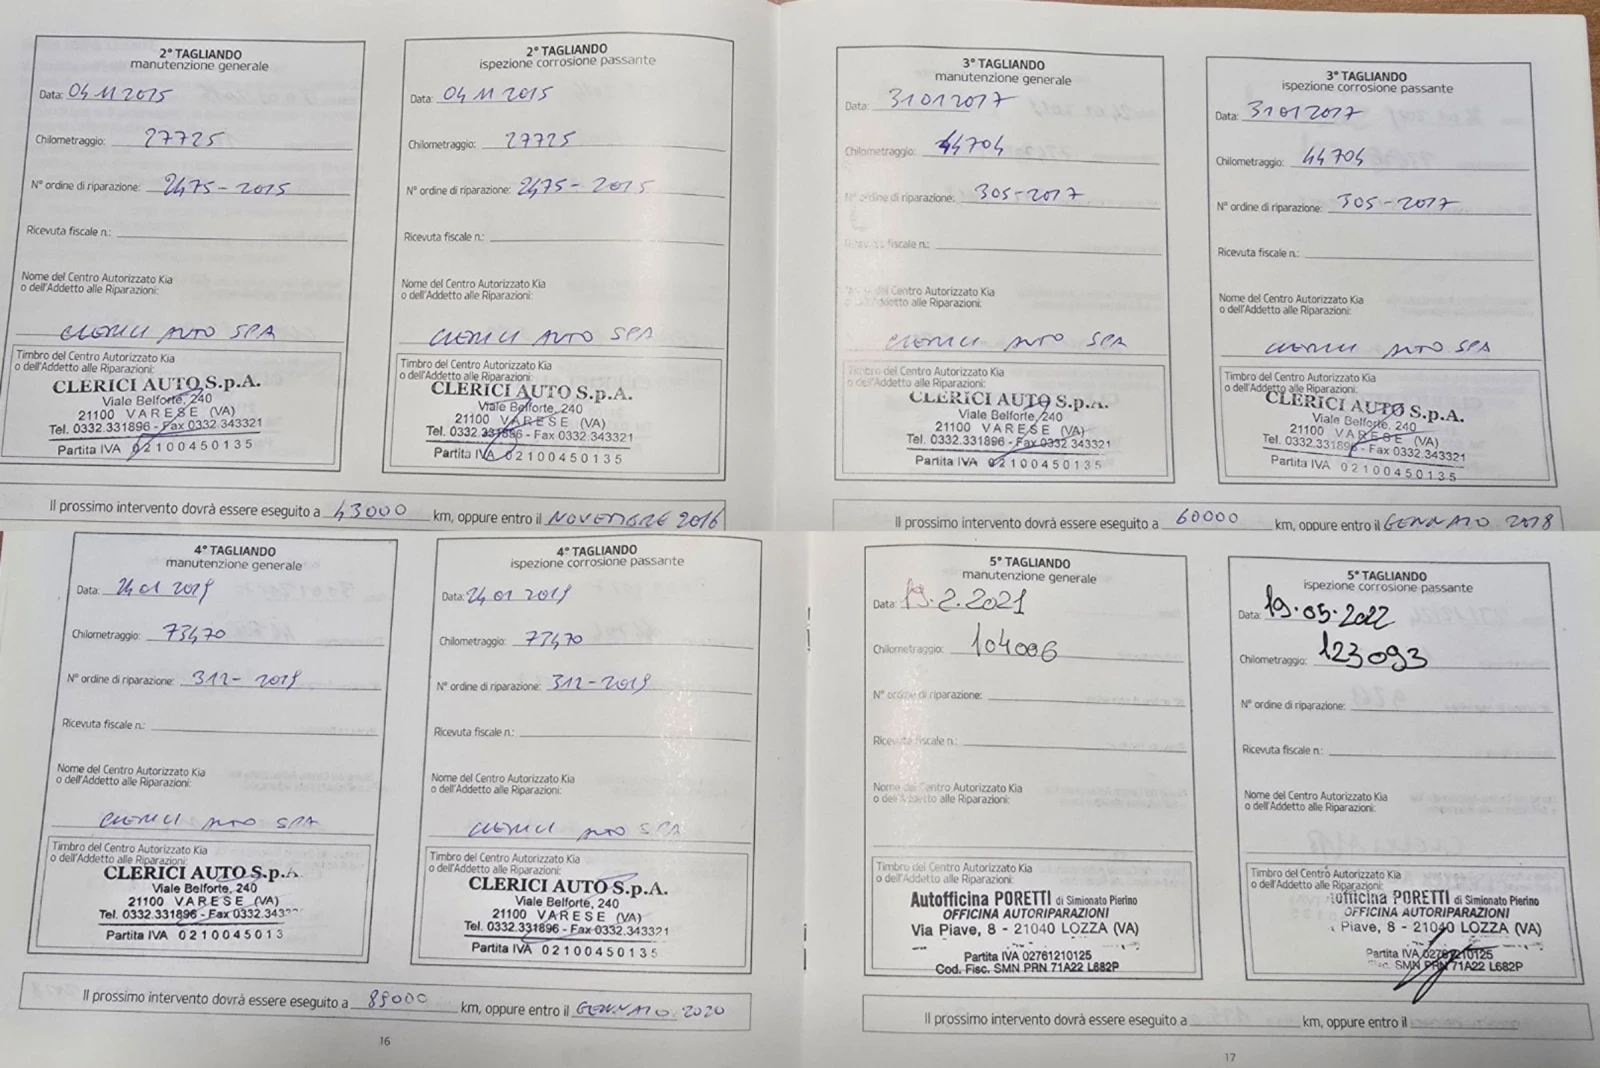 2° TAGLIANDO
manutenzione generale
Data: 04 11 2015
Chilometraggio: 27725
N° ordine di riparazione: 2475-2015
Ricevuta fiscale n.:
Nome del Centro Autorizzato Kia
o dell'Addetto alle Riparazioni:
CLERICI AUTO SPA
Timbro del Centro Autorizzato Kia
o dell'Addetto alle Riparazioni:
CLERICI AUTO S.p.A.
Viale Belforte, 240
21100 VARESE (VA)
Tel. 0332.331896 - Fax 0332.343321
Partita IVA 02100450135
2° TAGLIANDO
ispezione corrosione passante
Data: 04 11 2015
Chilometraggio: 27725
N° ordine di riparazione: 2475-2015
Ricevuta fiscale n.:
Nome del Centro Autorizzato Kia
o dell'Addetto alle Riparazioni:
CLERICI AUTO SPA
Timbro del Centro Autorizzato Kia
o dell'Addetto alle Riparazioni:
CLERICI AUTO S.p.A.
Viale Belforte, 240
21100 VARESE (VA)
Tel. 0332.331896 - Fax 0332.343321
Partita IVA 02100450135
Il prossimo intervento dovrà essere eseguito a 43000 km, oppure entro il NOVEMBRE 2016
3° TAGLIANDO
manutenzione generale
Data: 31 01 2017
Chilometraggio: 44704
N° ordine di riparazione: 305-2017
Ricevuta fiscale n.:
Nome del Centro Autorizzato Kia
o dell'Addetto alle Riparazioni:
CLERICI AUTO SPA
Timbro del Centro Autorizzato Kia
o dell'Addetto alle Riparazioni:
CLERICI AUTO S.p.A.
Viale Belforte, 240
21100 VARESE (VA)
Tel. 0332.331896 - Fax 0332.343321
Partita IVA 02100450135
3° TAGLIANDO
ispezione corrosione passante
Data: 31 01 2017
Chilometraggio: 44704
N° ordine di riparazione: 305-2017
Ricevuta fiscale n.:
Nome del Centro Autorizzato Kia
o dell'Addetto alle Riparazioni:
CLERICI AUTO SPA
Timbro del Centro Autorizzato Kia
o dell'Addetto alle Riparazioni:
CLERICI AUTO S.p.A.
Viale Belforte, 240
21100 VARESE (VA)
Tel. 0332.331896 - Fax 0332.343321
Partita IVA 02100450135
Il prossimo intervento dovrà essere eseguito a 60000 km, oppure entro il GENNAIO 2018
4° TAGLIANDO
manutenzione generale
Data: 24 01 2019
Chilometraggio: 73470
N° ordine di riparazione: 312-2019
Ricevuta fiscale n.:
Nome del Centro Autorizzato Kia
o dell'Addetto alle Riparazioni:
CLERICI AUTO SPA
Timbro del Centro Autorizzato Kia
o dell'Addetto alle Riparazioni:
CLERICI AUTO S.p.A.
Viale Belforte, 240
21100 VARESE (VA)
Tel. 0332.331896 - Fax 0332.343
Partita IVA 0210045013
4° TAGLIANDO
ispezione corrosione passante
Data: 24 01 2019
Chilometraggio: 73470
N° ordine di riparazione: 312-2019
Ricevuta fiscale n.:
Nome del Centro Autorizzato Kia
o dell'Addetto alle Riparazioni:
CLERICI AUTO SPA
Timbro del Centro Autorizzato Kia
o dell'Addetto alle Riparazioni:
CLERICI AUTO S.p.A.
Viale Belforte, 240
21100 VARESE (VA)
Tel. 0332.331896 - Fax 0332.343321
Partita IVA 02100450135
Il prossimo intervento dovrà essere eseguito a 89000 km, oppure entro il GENNAIO 2020
16
5° TAGLIANDO
manutenzione generale
Data: 19.2.2021
Chilometraggio: 104096
N° ordine di riparazione:
Ricevuta fiscale n.:
Nome del Centro Autorizzato Kia
o dell'Addetto alle Riparazioni:
Timbro del Centro Autorizzato Kia
o dell'Addetto alle Riparazioni:
Autofficina PORETTI di Simionato Pierino
OFFICINA AUTORIPARAZIONI
Via Piave, 8 - 21040 LOZZA (VA)
Partita IVA 02761210125
Cod. Fisc. SMN PRN 71A22 L682P
5° TAGLIANDO
ispezione corrosione passante
Data: 19.05.2022
Chilometraggio: 123093
N° ordine di riparazione:
Ricevuta fiscale n.:
Nome del Centro Autorizzato Kia
o dell'Addetto alle Riparazioni:
Timbro del Centro Autorizzato Kia
o dell'Addetto alle Riparazioni:
officina PORETTI di Simionato Pierino
OFFICINA AUTORIPARAZIONI
Piave, 8 - 21040 LOZZA (VA)
Partita IVA 02761210125
SMN PRN 71A22 L682P
Il prossimo intervento dovrà essere eseguito a km, oppure entro il
17